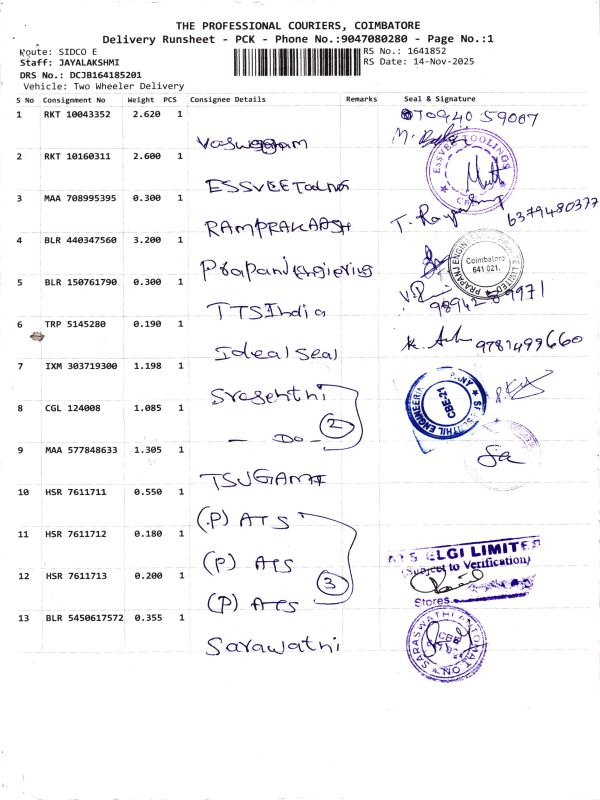 THE PROFESSIONAL COURIERS, COIMBATORE
Delivery Runsheet - PCK - Phone No.:9047080280 - Page No.:1
Route: SIDCO E
RS No.: 1641852
Staff: JAYALAKSHMI
RS Date: 14-Nov-2025
DRS No.: DCJB164185201
Vehicle: Two Wheeler Delivery
S No Consignment No Weight PCS Consignee Details Remarks Seal & Signature
1 RKT 10043352 2.620 1
2 RKT 10160311 2.600 1 ESSVEE Toolings
ESSVEE TOOLINGS
3 MAA 708995395 0.300 1 RAMPRAKAASH 6379480377
4 BLR 440347560 3.200 1 Prapanj Engiering
PRAPANJ ENGINEERING PRIVATE LIMITED
Coimbatore
641 021.
5 BLR 150761790 0.300 1 TTS India
6 TRP 5145280 0.190 1 Ideal Seal 9781499660
7 IXM 303719300 1.198 1
8 CGL 124008 1.085 1 - Do - 2
CBE-21
9 MAA 577848633 1.305 1 TSUGAMI
10 HSR 7611711 0.550 1 (P) ATS
11 HSR 7611712 0.180 1 (P) ATS
ATS ELGI LIMITED
(Subject to Verification)
12 HSR 7611713 0.200 1 (P) ATS 3
Stores
13 BLR 5450617572 0.355 1 Sarawathi
CBE